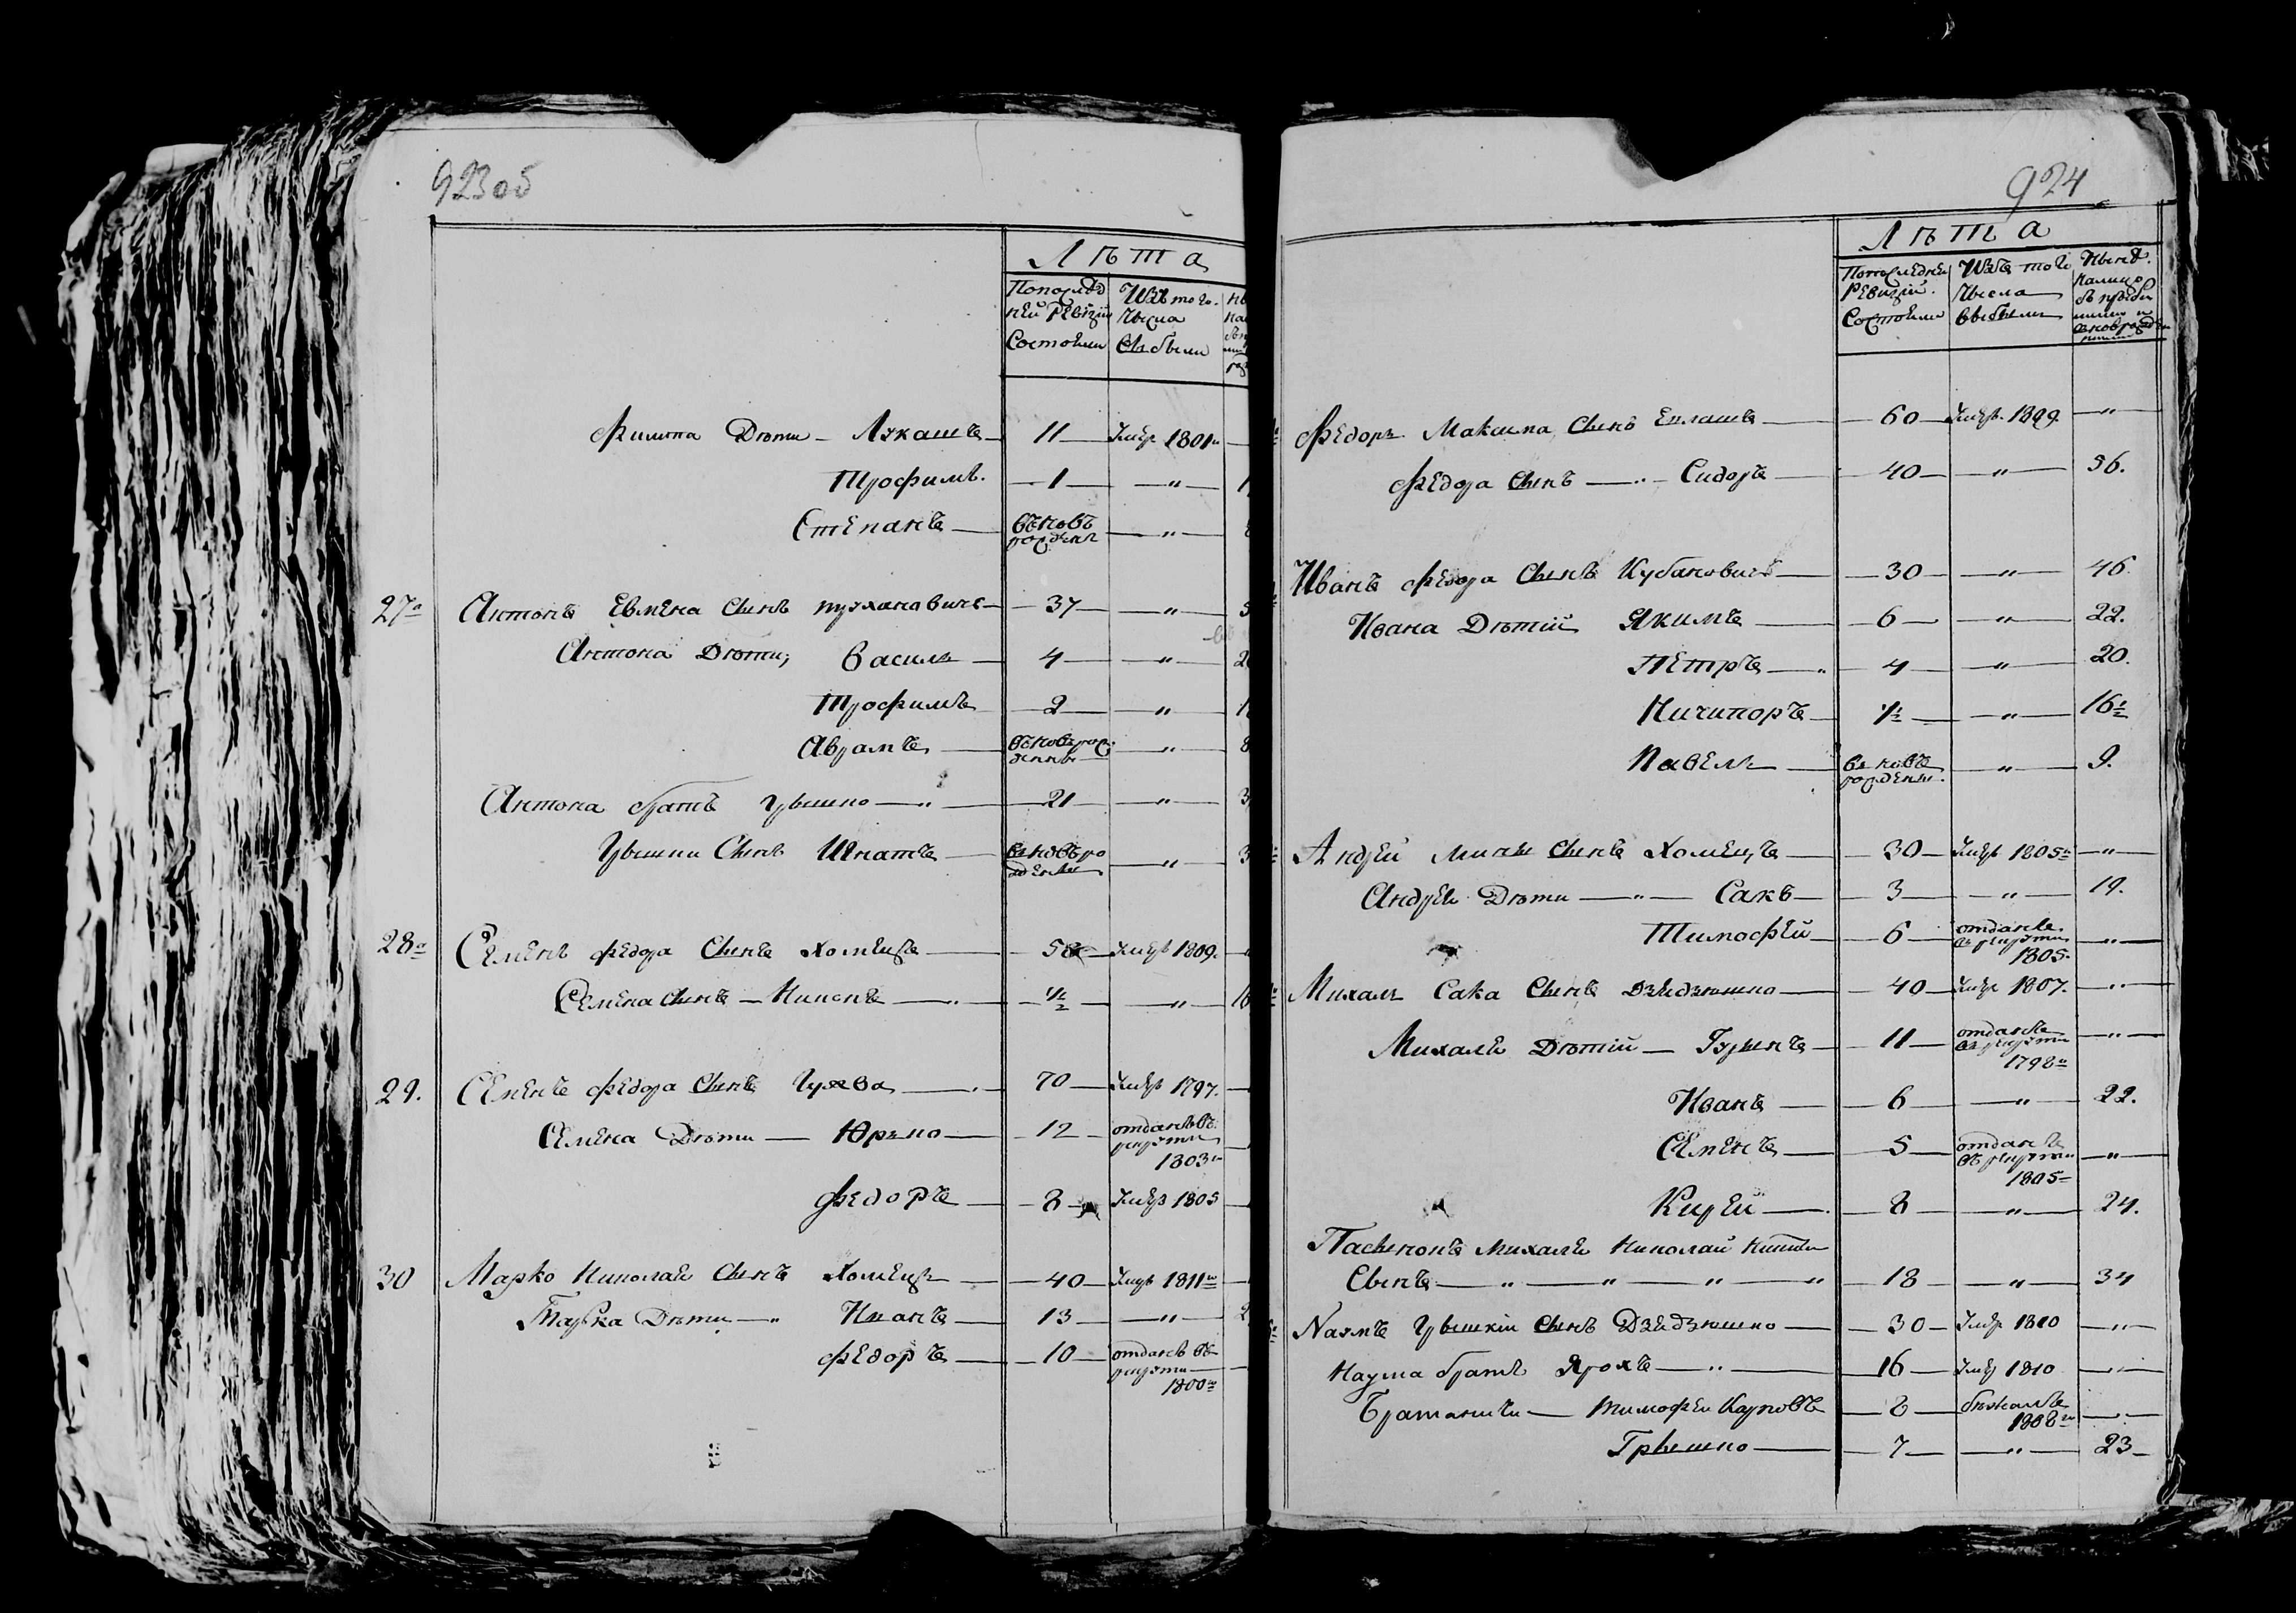 923об
Лѣта
Попослѣд Изъ того
ней Ревизіи Числа
Состояли Выбыли
Филипа Дѣти Лукашъ 11 Умеръ 1801
Трофимъ 1 "
Степанъ въновъ рожденъ "
27 Антонъ Евмена Сынъ 37 "
Антона Дѣти, Василь 4 "
Трофимъ 2 "
Аврамъ въновъ рожденъ " 8
Антона братъ Грышко 21 "
Грышки Сынъ Игнатъ въновъ рожденъ "
28 Семенъ Федора Сынъ Хомецъ 58 Умеръ 1809
Семена Сынъ Никонъ 1/2 "
29. Семенъ Федора Сынъ 70 Умеръ 1797
Семена Дѣти Юрко 12 отданъ въ рекруты 1803
Федоръ 8 Умеръ 1805
30 Марко Николая Сынъ Хомецъ 40 Умеръ 1811
Марка Дѣти Иванъ 13 "
Федоръ 10 отданъ въ рекруты 1800
924
Лѣта
Попослѣдней Изъ того Нынѣ
Ревизіи Числа налицо
Состояли выбыли
Федоръ Макыма Сынъ 60 Умеръ "
Федора Сынъ Сидоръ 40 " 56.
Иванъ Федора Сынъ Кубановичъ 30 " 46.
Ивана Дѣтій Якимъ 6 " 22.
Петръ 4 " 20.
Ничипоръ 1/2 " 16 1/2
Павелъ въ новѣ рожденъ " 9.
Андрей Мины Сынъ Хомецъ 30 Умеръ 1805 "
Андрея Дѣти Сакъ 3 " 19.
Тимофей 6 отданъ въ рекруты 1805 "
Михалъ Сака Сынъ Дзедзюшко 40 Умеръ 1807. "
Михала Дѣтій Гурынъ 11 отданъ въ рекруты 1798 "
Иванъ 6 " 22.
Семенъ 5 отданъ въ рекруты 1805 "
Кирей 8 " 24.
Пасынокъ Михала Николай
Сынъ " " " " 18 " 34
Наумъ Грышкіи Сынъ Дзедзюшко 30 Умеръ 1810 "
Наума братъ Ярохъ 16 Умер 1810 "
Братаничи Тимофей Карповъ 8 бѣжалъ 1808 "
Грышко 7 " 23